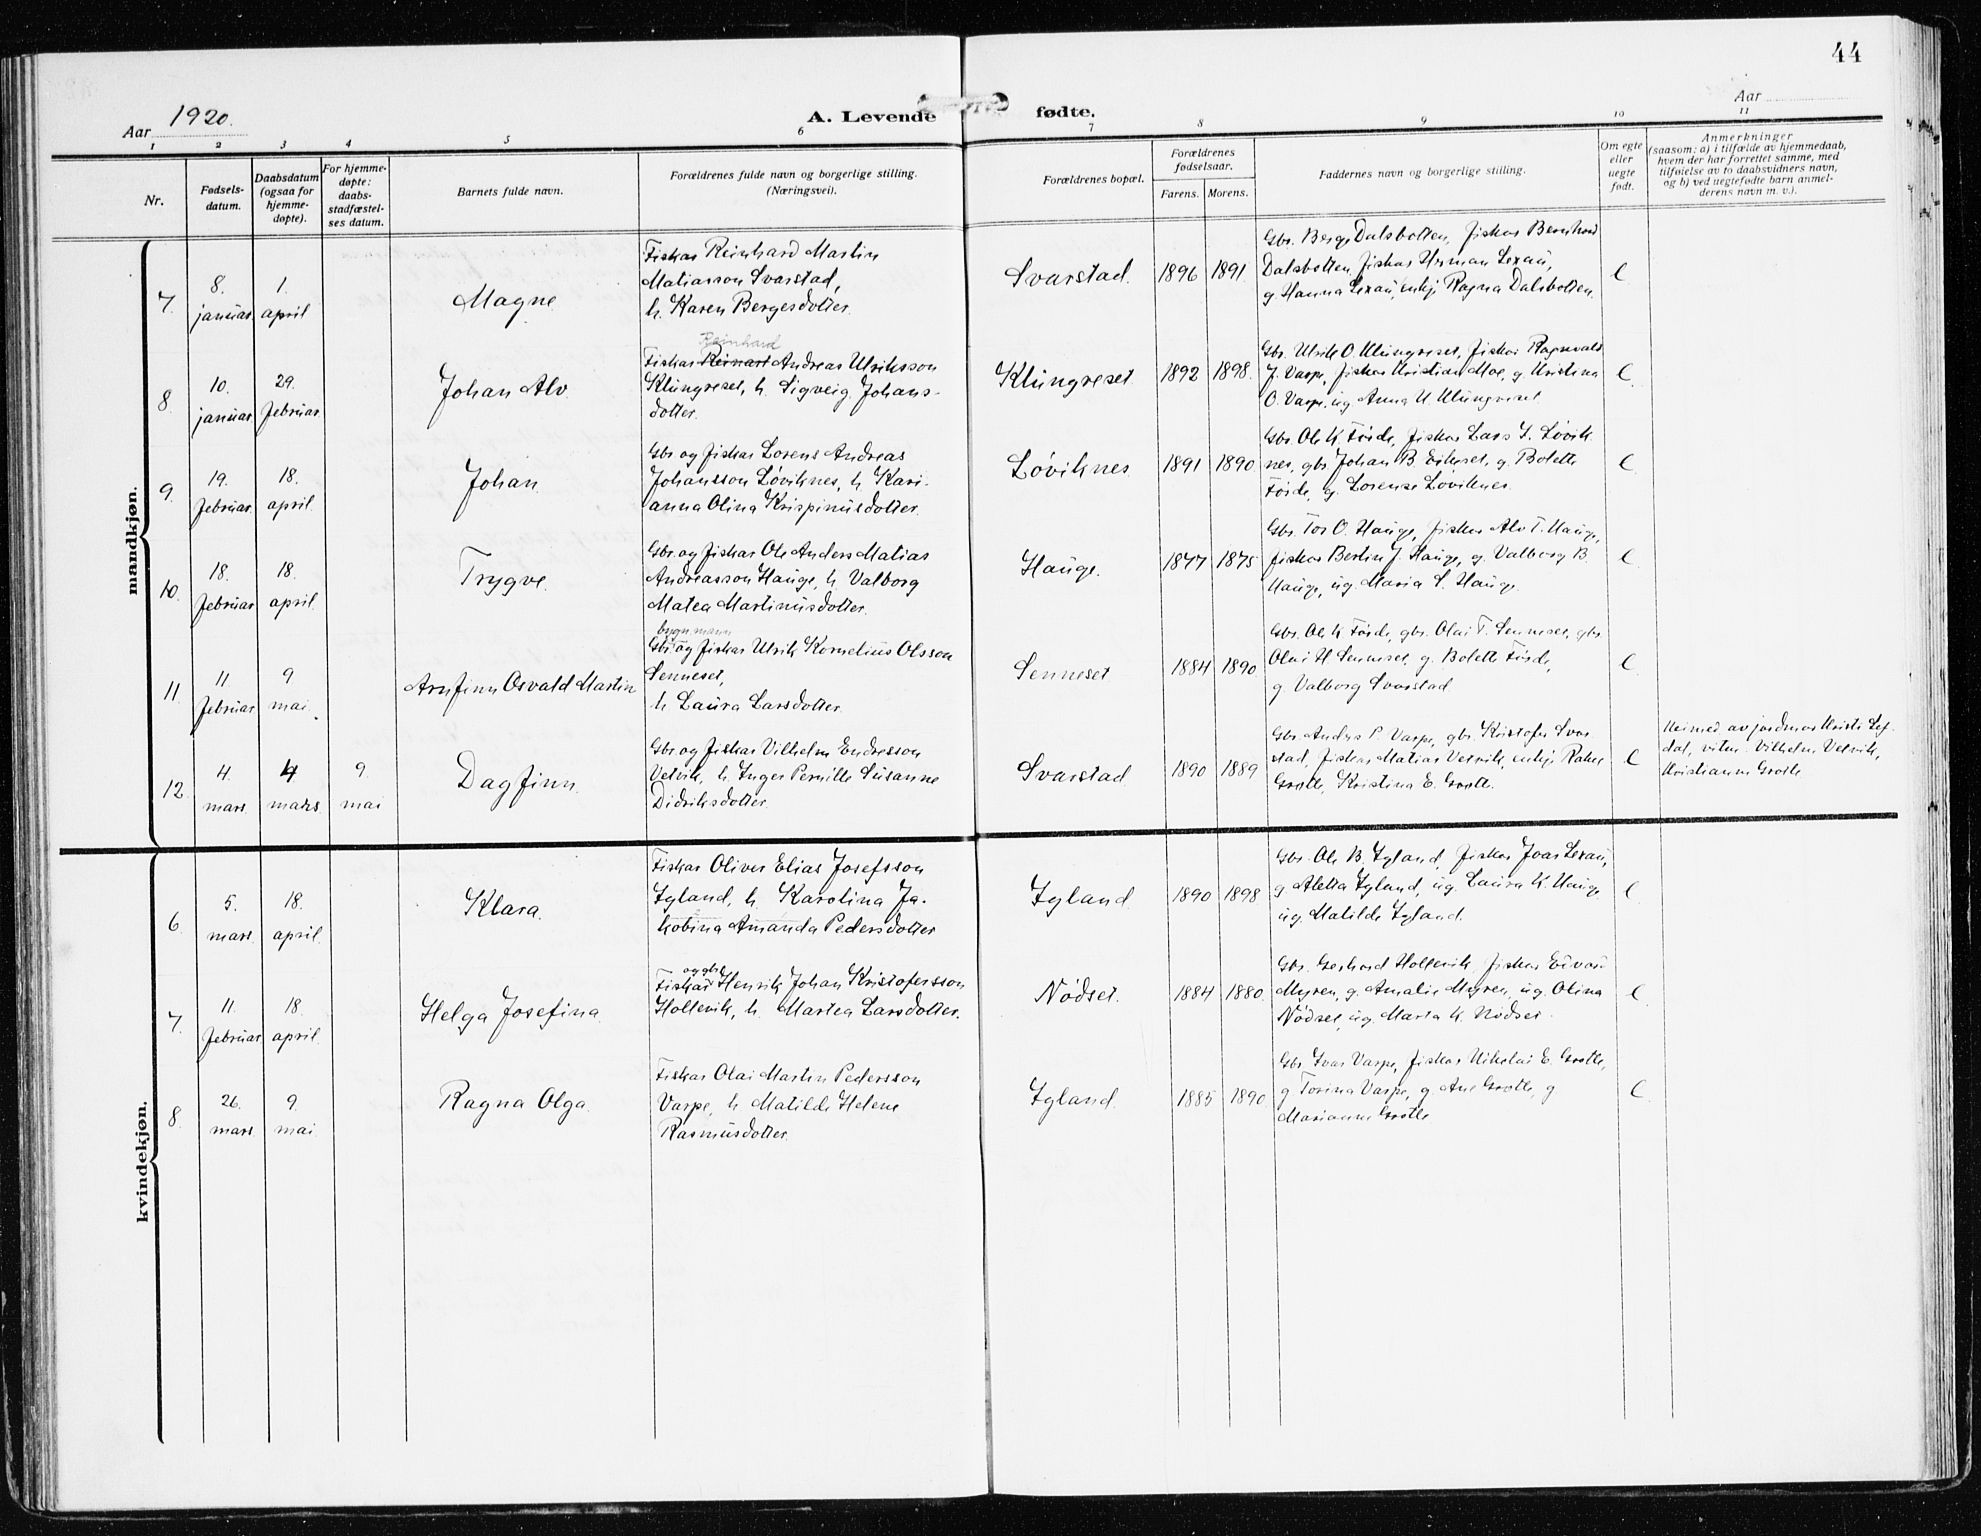 44
Aar 1920.
A. Levende fødte.
Aar
1 2 3 4 5 6 7 8 9 10 11
Nr.
Fødsels-
datum.
Daabsdatum
(ogsaa for
hjemme-
døpte).
For hjemme-
døpte:
daabs-
stadfæstel-
ses datum.
Barnets fulde navn.
Forældrenes fulde navn og borgerlige stilling.
(Næringsvei).
Forældrenes bopæl.
Forældrenes
fødselsaar.
Farens. Morens.
Faddernes navn og borgerlige stilling.
Om egte
eller
uegte
født.
Anmerkninger
(saasom: a) i tilfælde av hjemmedaab,
hvem der har forrettet samme, med
tilføielse av to daabsvidners navn,
og b) ved uegtefødte barn anmel-
derens navn m. v.).
mandkjøn.
7. 8. januar. 1. april Magne
Fiskar Reinhard Martin
Matiasson Svarstad,
h. Karen Bergesdotter.
Svarstad. 1896 1891.
Gbr. Berge Dalsbotten, fiskar Bernhard
Dalsbotten, fiskar Herman Lexau,
g. Hanna Lexau, enkje Ragna Dalsbotten.
8. 10. januar. 29. februar. Johan Alv.
Reinhard
Fiskar Reinart Andreas Ulriksson
Klungreset, h. Sigveig Johans-
dotter.
Klungreset 1892 1898.
Gbr. Ulrik O. Klungreset, fiskar Ragnvald
J. Varpe, fiskar Kristian Moe, g. Kristina
O. Varpe, ug. Anna U. Klungreset.
9. 19. februar. 18. april. Johan.
Gbr. og fiskar Lorens Andreas
Johansson Løviknes, h. Kari-
anna Olina Krispinusdotter.
Løviknes 1891 1890
Gbr. Ole K. Førde, fiskar Lars L. Løvik
nes, gbr. Johan B. Eikeset, g. Bolette
Førde, g. Lorense Løviknes.
10. 18. februar 18. april. Trygve.
Gbr. og fiskar Ole Anders Matias
Andreasson Hauge, h. Valborg
Matea Martinusdotter.
Hauge. 1877 1875
Gbr. Tor O. Hauge, fiskar Alv T. Hauge,
fiskar Bertin J. Hauge, g. Valborg B.
Hauge, ug. Maria L. Hauge.
11. 11. februar 9. mai. Arnfinn Osvald Martin
bygn.mann
Gbr. og fiskar Ulrik Kornelius Olsson
Senneset,
h. Laura Larsdotter.
Senneset 1884 1890.
Gbr. Ole K. Førde, gbr. Olai T. Senneset, gbr.
Olai H. Senneset, g. Bolette Førde,
g. Valborg Svarstad.
12. 4. mars. 4 mars 9. mai Dagfinn.
Gbr. og fiskar Vilhelm Endresson
Vetvik, h. Inger Pernille Susanne
Didriksdotter.
Svarstad 1890 1889
Gbr. Anders P. Varpe, gbr. Kristofer Svar
stad, fiskar Matias Vetvik, enkje Rakel
Grotle, Kristina E. Grotle.
Heimed. av jordmor Kristi Sef-
dal, vitne: Vilhelm Vetvik,
Kristianna Grotle.
kvindekjøn.
6. 5. mars. 18. april. Klara.
Fiskar Oliver Elias Josefsson
Igland, h. Karolina Ja-
kobina Amanda Pedersdotter
Igland 1890 1898
Gbr. Ole B. Igland, fiskar Ivar Lexau,
g. Aletta Igland, ug. Laura K. Hauge,
ug. Matilde Igland.
7. 11. februar 18. april. Helga Josefina.
og gbr.
Fiskar Henrik Johan Kristofersson
Hollevik, h. Martea Larsdotter.
Nødset. 1884 1880.
Gbr. Gerhard Hollevik, fiskar Eivari
Myren, g. Amalie Myren, ug. Olina
Nødset, ug. Marta K. Nødset.
8. 26. mars. 9. mai. Ragna Olga.
Fiskar Olai Martin Pedersson
Varpe, h. Matilde Helene
Rasmusdotter.
Igland. 1885 1890
Gbr. Ivar Varpe, fiskar Nikolai E. Grotle,
g Torina Varpe, g. Ane Grotle, g
Marianne Grotle